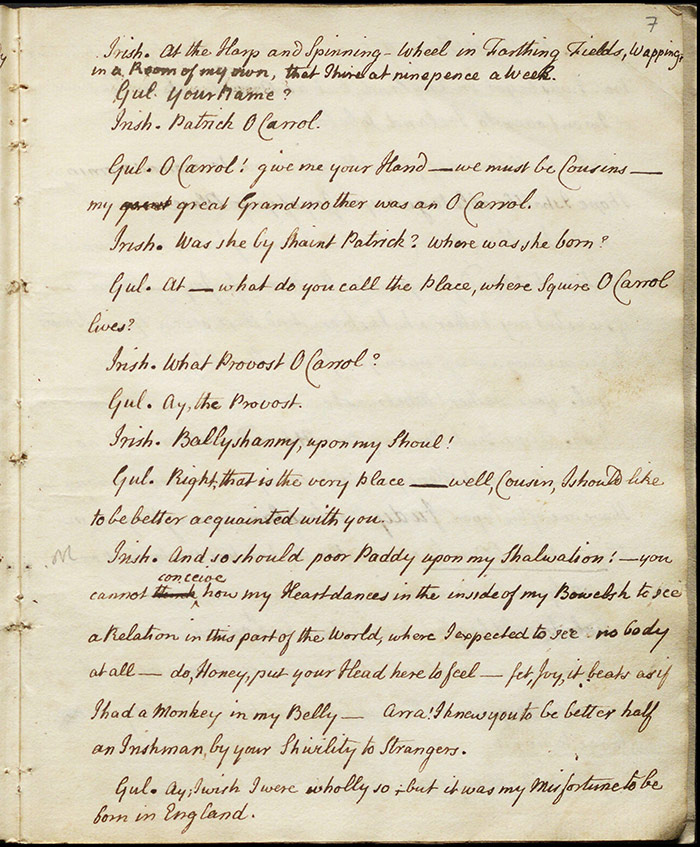 7
Irish. At the Harp and Spinning-wheel in Farthing Fields, Wapping,
in a Room of my own, that I hire at ninepence a Week.
Gul. Your Name?
Irish. Patrick O Carrol.
Gul. O Carrol! give me your Hand — we must be Cousins —
my great great Grandmother was an O Carrol.
Irish. Was she by Shaint Patrick? where was she born?
Gul. At — what do you call the Place, where Squire O Carrol
lives?
Irish. What Provost O Carrol?
Gul. Ay, the Provost.
Irish. Ballyshanny, upon my Shoul!
Gul. Right, that is the very place — well, Cousin, I should like
to be better acquainted with you.
Irish. And so should poor Paddy upon my Shalwation! — you
conceive
cannot think how my Heart dances in the inside of my Bowelsh to see
a Relation in this part of the World, where I expected to see no body
at all — do, Honey, put your Head here to feel — fet, Joy, it beats as if
I had a Monkey in my Belly — Arra! I knew you to be better half
an Irishman, by your Shivility to Strangers.
Gul. Ay, I wish I were wholly so; but it was my Misfortune to be
born in England.